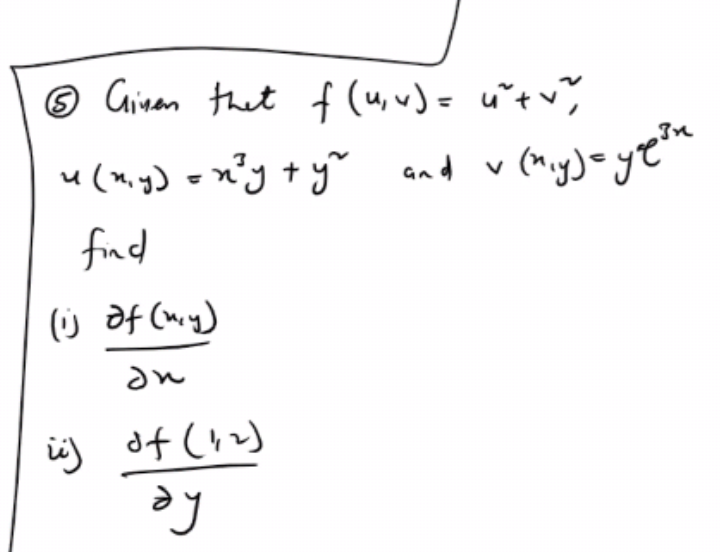 ⑤ Given that f(u,v) = u² + v²,
u(x,y) = x³y + y² and v(x,y) = ye³ˣ
find
(i) ∂f(x,y)
∂x
ii) ∂f(1,2)
∂y